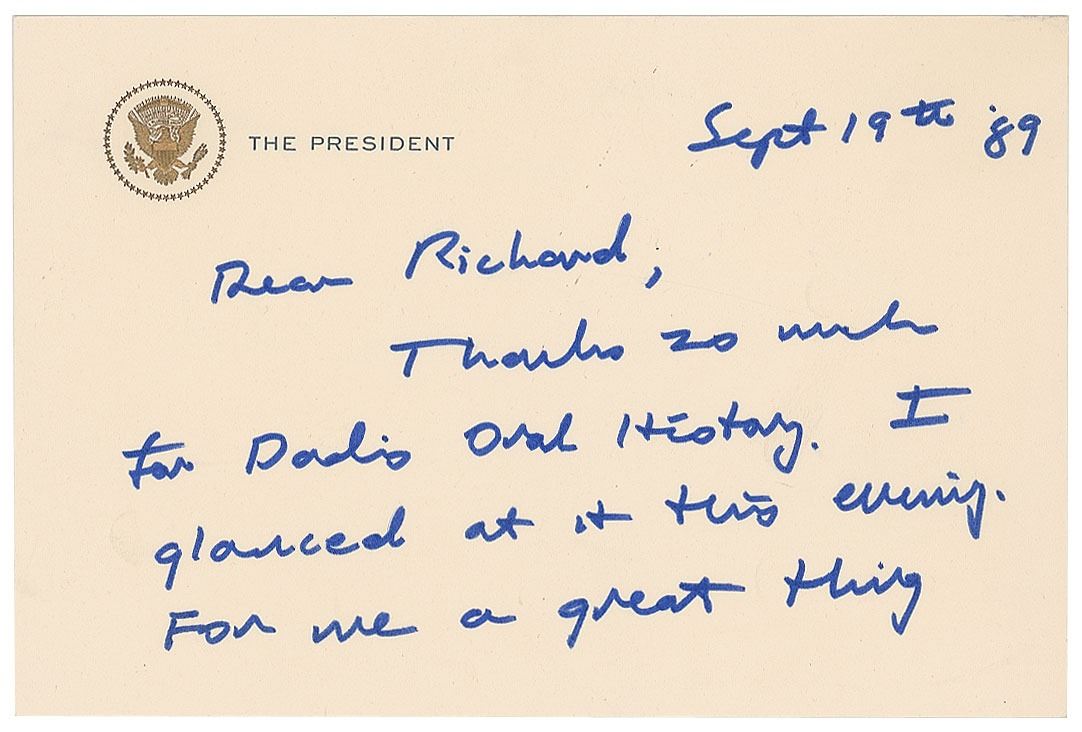 THE PRESIDENT
Sept 19th '89
Dear Richard,
Thanks so much
for Dad's Oral History. I
glanced at it this evening.
For me a great thing